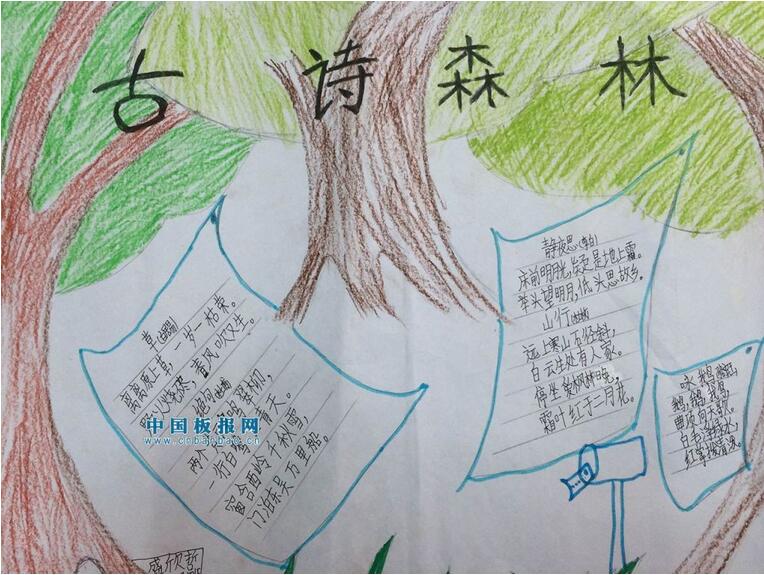 古诗森林
草
离离原上草，一岁一枯荣。
春风吹又生。
绝句
鸣翠柳
两个
一行白鹭 青天。
窗含西岭千秋雪，
门泊东吴万里船。
中国板报网
www.cnbanbao.cn
静夜思
床前明光，疑是地上霜。
举头望明月，低头思故乡。
山行
远上寒山石径斜，
白云生处有人家。
停坐爱枫林晚，
霜叶红于二月花。
咏鹅
鹅鹅鹅
曲项向天歌。
白毛浮绿水，
红掌拨清波。
盛欣哲